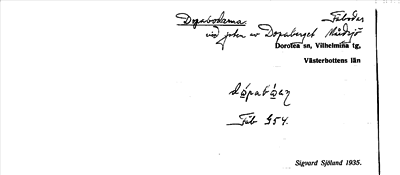 Dopabodarna. Fäbodar
vid foten av Dopaberget
Dorotea sn, Vilhelmina tg,
Västerbottens län
Fäb 954.
Sigvard Sjöland 1935.